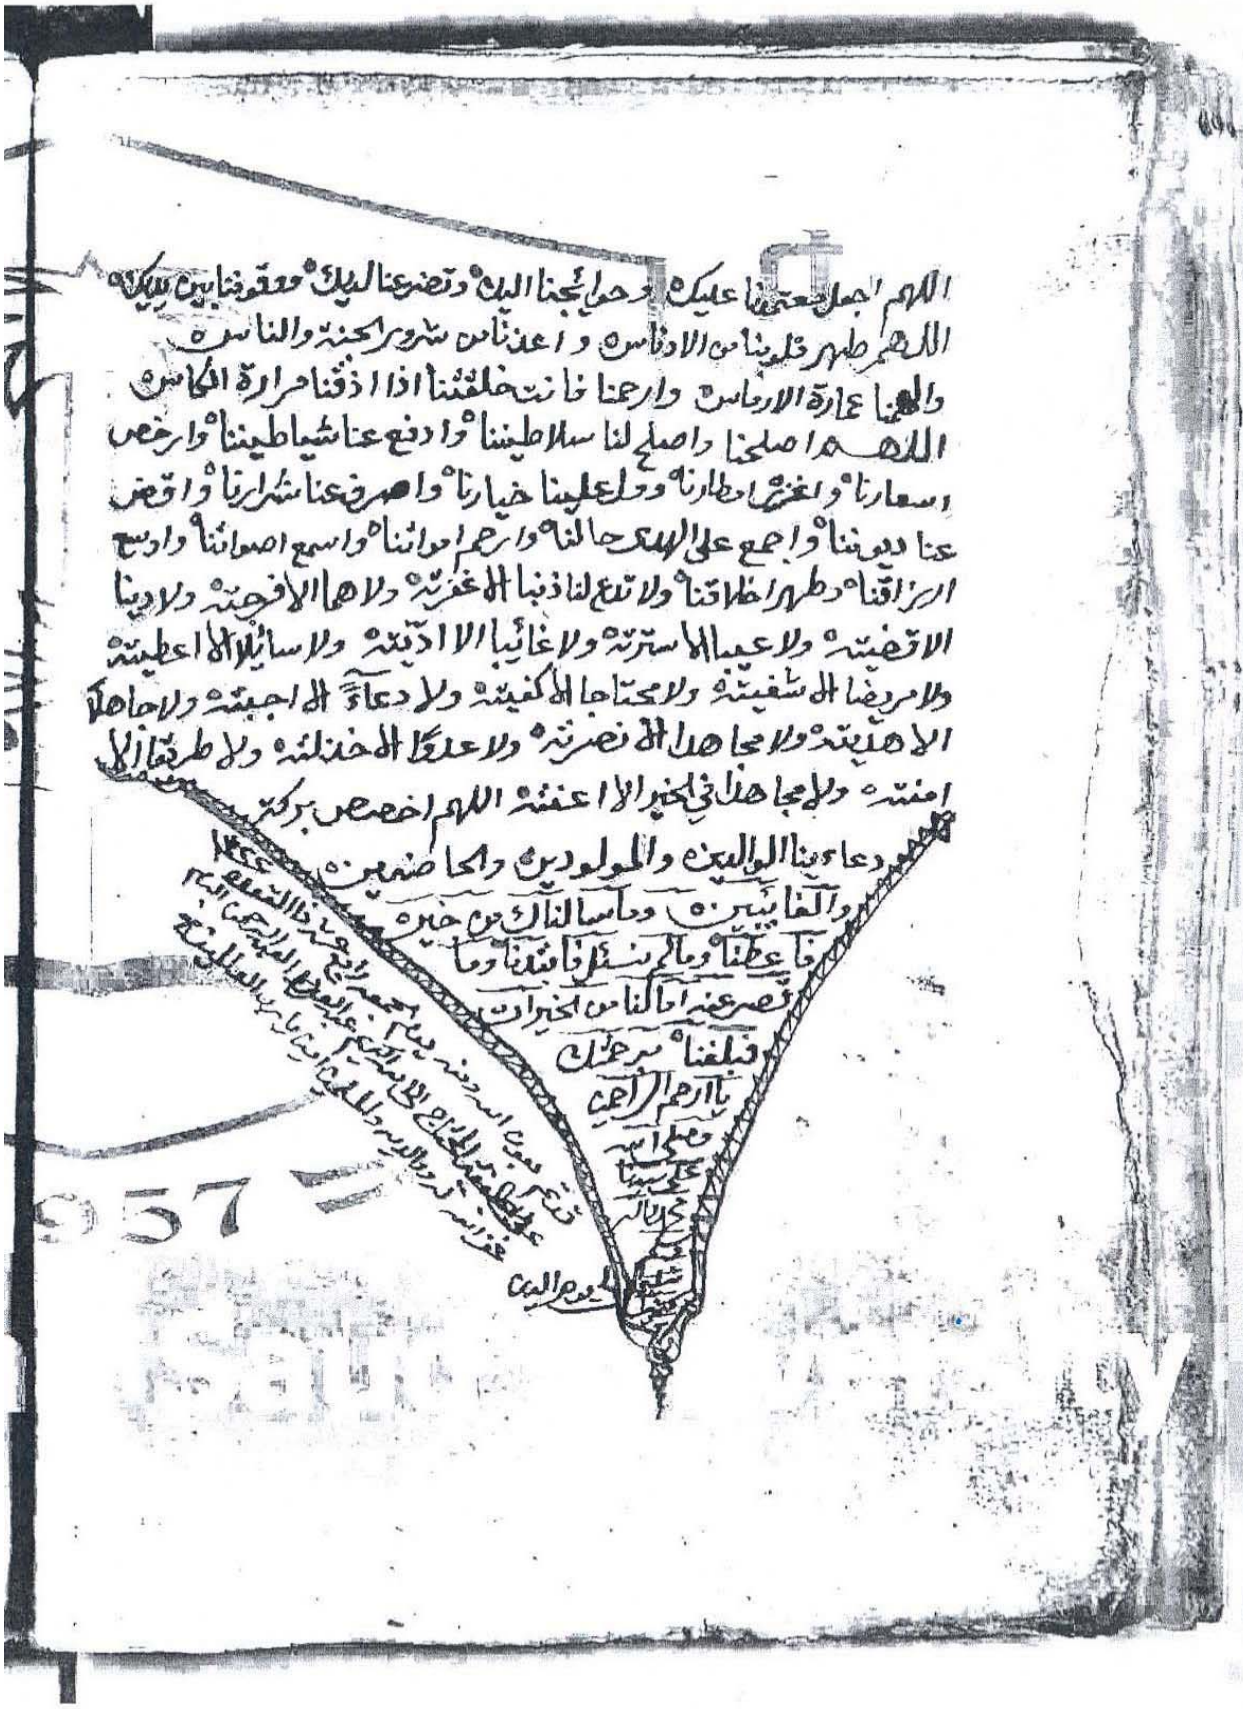 اللهم اجعل معتمدنا عليك وحوائجنا اليك وتضرعنا لديك ووقوفنا بين يديك
اللهم طهر قلوبنا من الادناس واعذنا من شرور الجنة والناس
والهمنا عمارة الارماس وارحمنا فانت خلقتنا اذا اذقنا مرارة الكاس
اللهم اصلحنا واصلح لنا سلاطيننا وادفع عنا شياطيننا وارخص
اسعارنا واغزر امطارنا وول علينا خيارنا واصرف عنا شرارنا واقض
عنا ديوننا واجمع على الهدى حالنا وارحم امواتنا واسمع اصواتنا واوسع
ارزاقنا وطهر اخلاقنا ولا تدع لنا ذنبا الا غفرته ولا هما الا فرجته ولا دينا
الا قضيته ولا عيبا الا سترته ولا غائبا الا ادّيته ولا سايلا الا اعطيته
ولا مريضا الا شفيته ولا محتاجا الا كفيته ولا دعآءً الا اجبته ولا جاهلا
الا هديته ولا مجاهدا الا نصرته ولا عدوًا الا خذلته ولا طريقا الا
امنته ولا مجاهدا في الخير الا اعنته اللهم اخصص بركة
دعاءينا الوالدين والمولودين والحاضرين
والغائبين وما سالناك من خير
فاعطنا وما لم نسئل فابتدنا وما
قصر عنه امالنا من الخيرات
فبلغنا برحمتك
يا ارحم الراحمين
وصلى الله
على سيدنا
محمد واله
تم بعون الله ومنه يوم الجمعة رابع
غفر الله له ولوالديه وللمسلمين امين يا رب العالمين
957
Saud